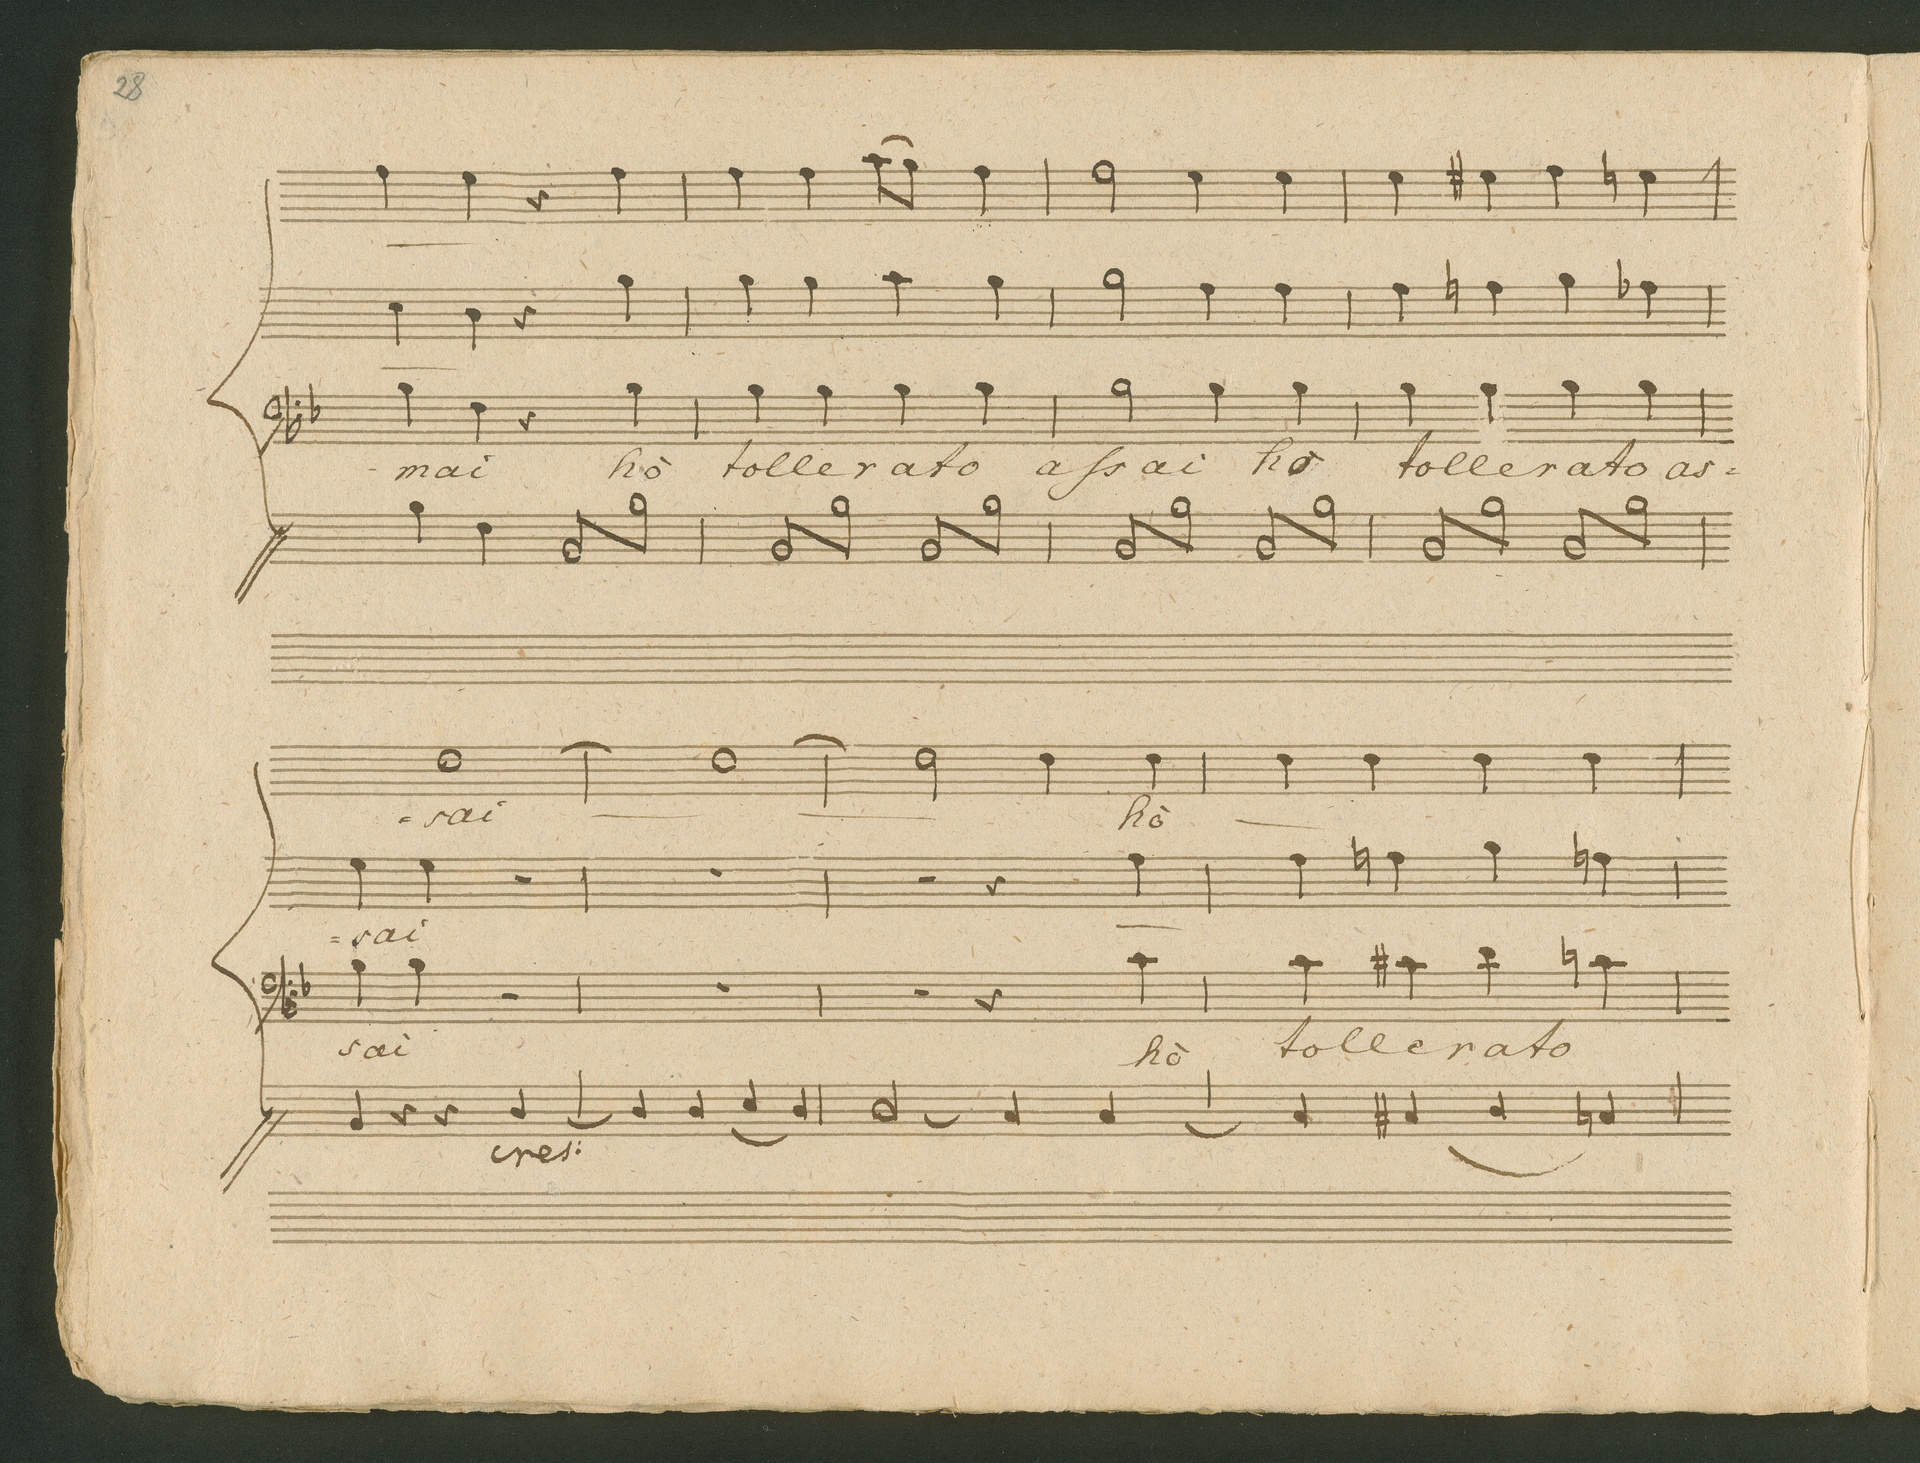 28
- mai hò tollerato assai hò tollerato as=
=sai hò
=sai
sai hò tollerato
cres: